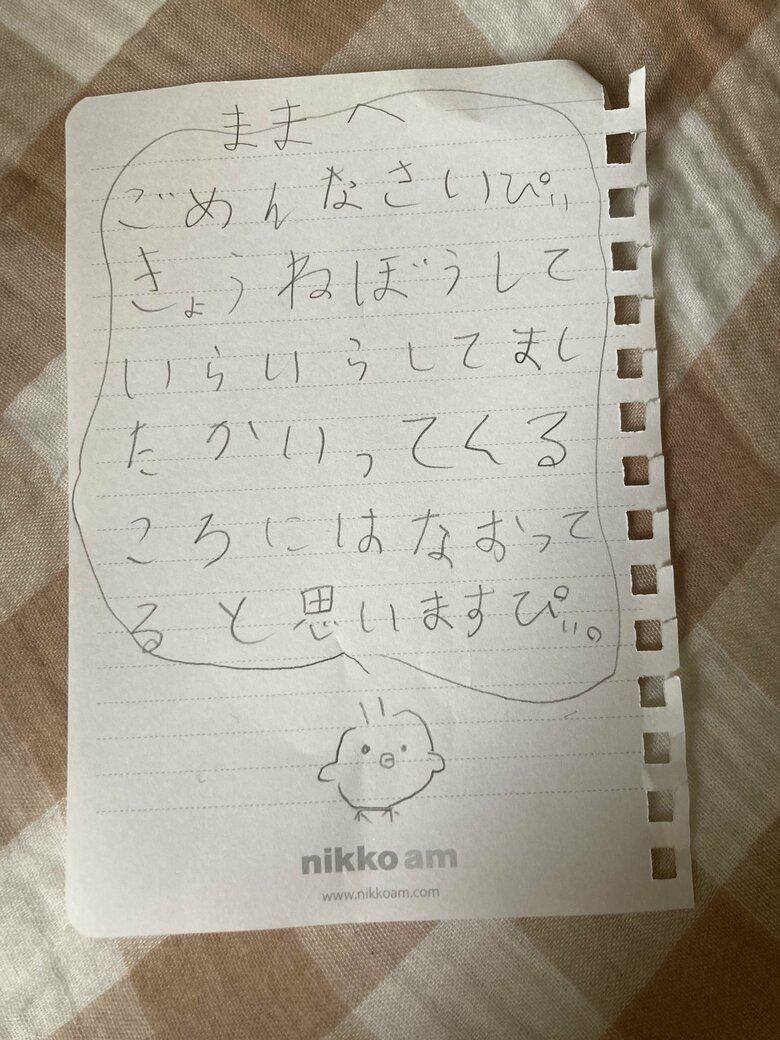 ままへ
ごめんなさいぴ。,,
きょうねぼうして
いらいらしてまし
たかいってくる
ころにはなおって
ると思いますぴ,,。
nikko am
www.nikkoam.com